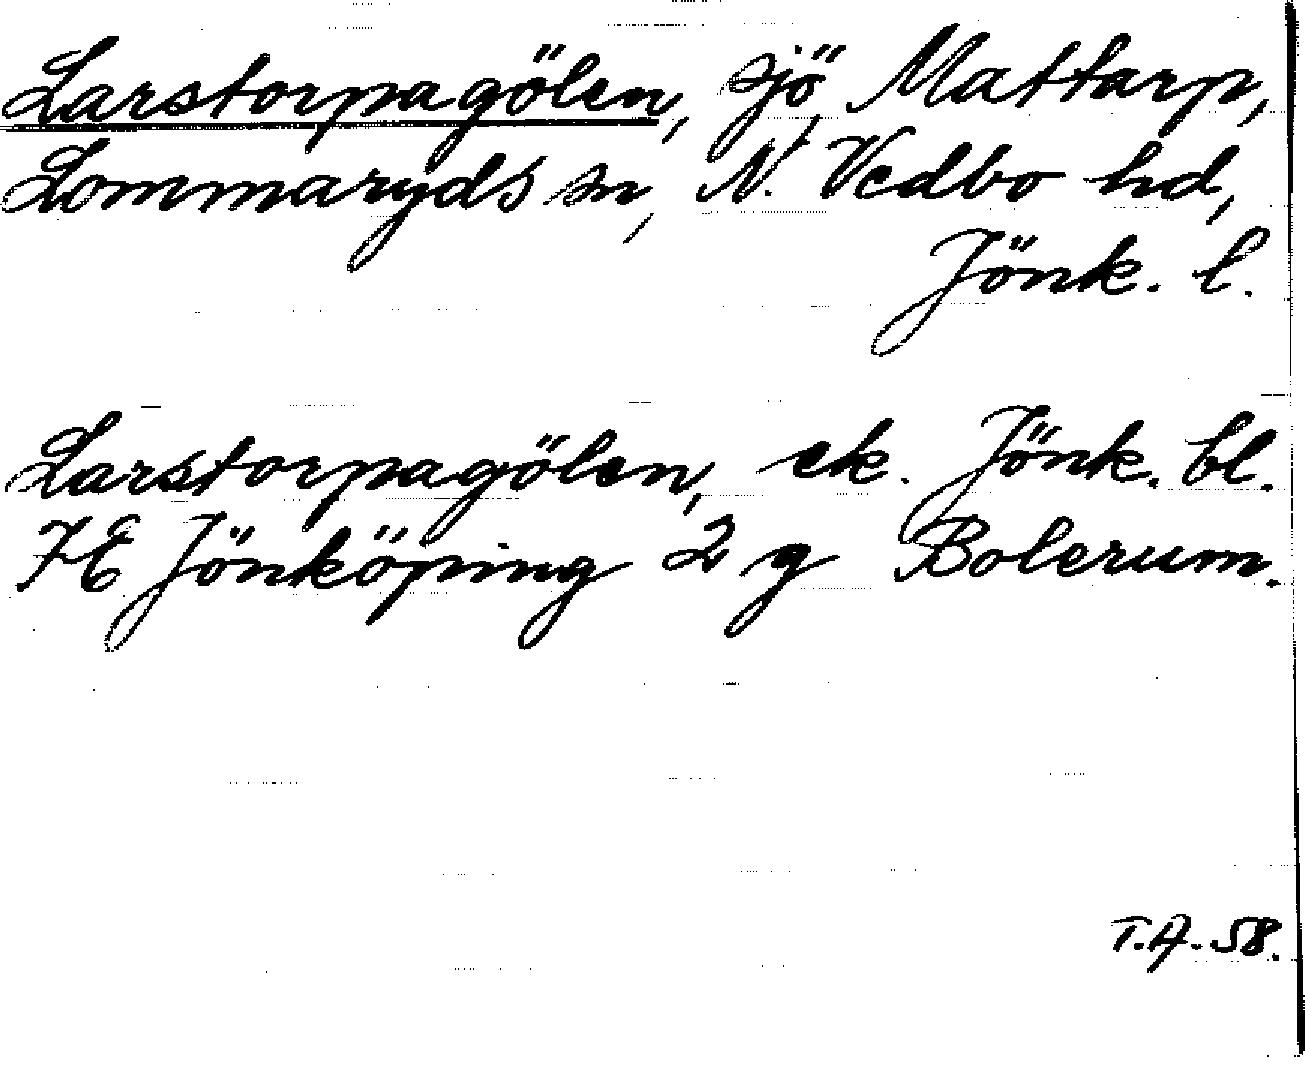 Larstorpagölen, sjö, Mattarp,
Lommaryds sn, N. Vedbo hd,
Jönk. l.
Larstorpagölen, ek. Jönk. bl.
7E Jönköping 2 g Bolerum.
T.A. 58.